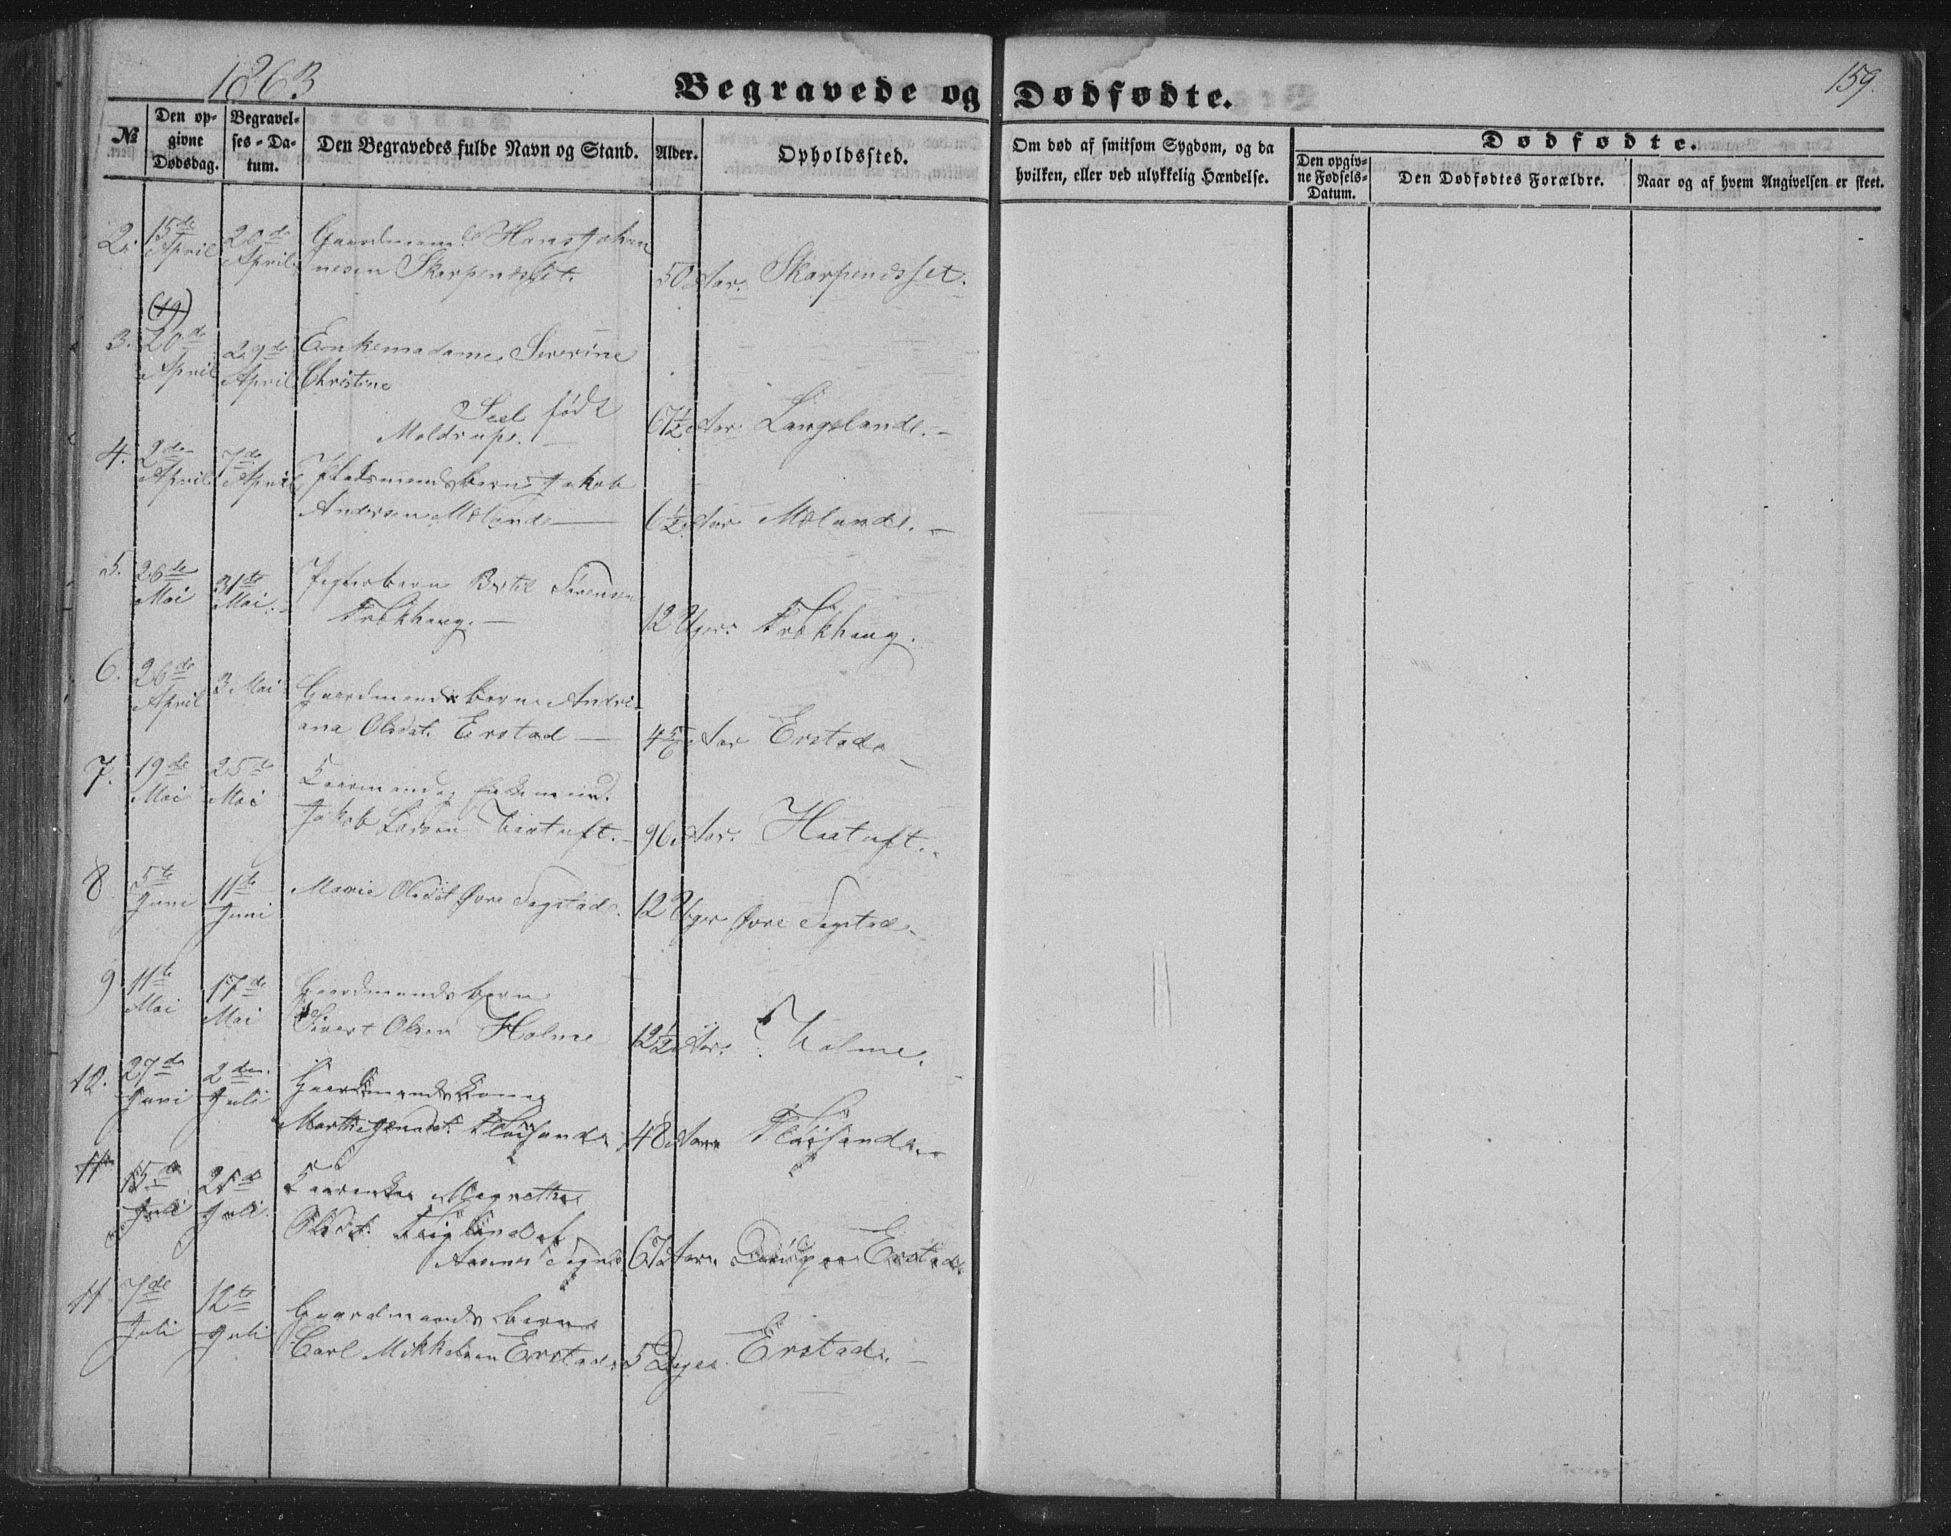 1863
Begravede og Dødfødte.
159.
№
Den op-
givne
Dødsdag.
Begravel-
ses-Da-
tum.
Den Begravedes fulde Navn og Stand.
Alder.
Opholdssted.
Om død af smitsom Sygdom, og da
hvilken, eller ved ulykkelig Hændelse.
Dødfødte.
Den opgiv-
ne Fødsels-
Datum.
Den Dødfødtes Forældre.
Naar og af hvem Angivelsen er skeet.
2. 15de April 20de April Gaardmand Hans Johan
nesen Skarpendsset. 50 Aar. Skarpendsset.
(19)
3. 20de April 29de April Enkemadame Severine
Christine
Seel født
Moldrups. 67½ Aar. Langelande.
4. 2den April 7de April Pladsmandsbarn Jakob
Andersen Mælande 6½ Aar Mælande.
5. 26de Mai 31te Mai. Pigebarn Bertil Sørensen
Trækhaug. 12 Uger. Trækhaug.
6. 26de April 3 Mai Gaardmandsbarn Andri-
ana Olsdat. Erstad 4 5/6 Aar Erstad
7. 19de Mai 25te Mai Kaarmand og Enkemand
Jakob Larsen Haatuft. 96 Aar. Haatuft.
8 5te Juni 11te Juni Marie Olsdat Øvre Sagstad. 12 Uger Øvre Sagstad
9 11te Mai 17de Mai Gaardmandsbarn
Sivert Olsen Holme 12½ Aar. Holme.
10. 27de Juni 2den Juli Gaardmandskone
Marthe Fløisand 48 Aar Fløisand
11 15de Juli 21de Juli Kaarenke Magrethe
Olsdat. 67 Aar Erstad
11 7de Juli 12te Juli Gaardmands barn
Carl Mikkelsen Erstad 5 Dage Erstad.